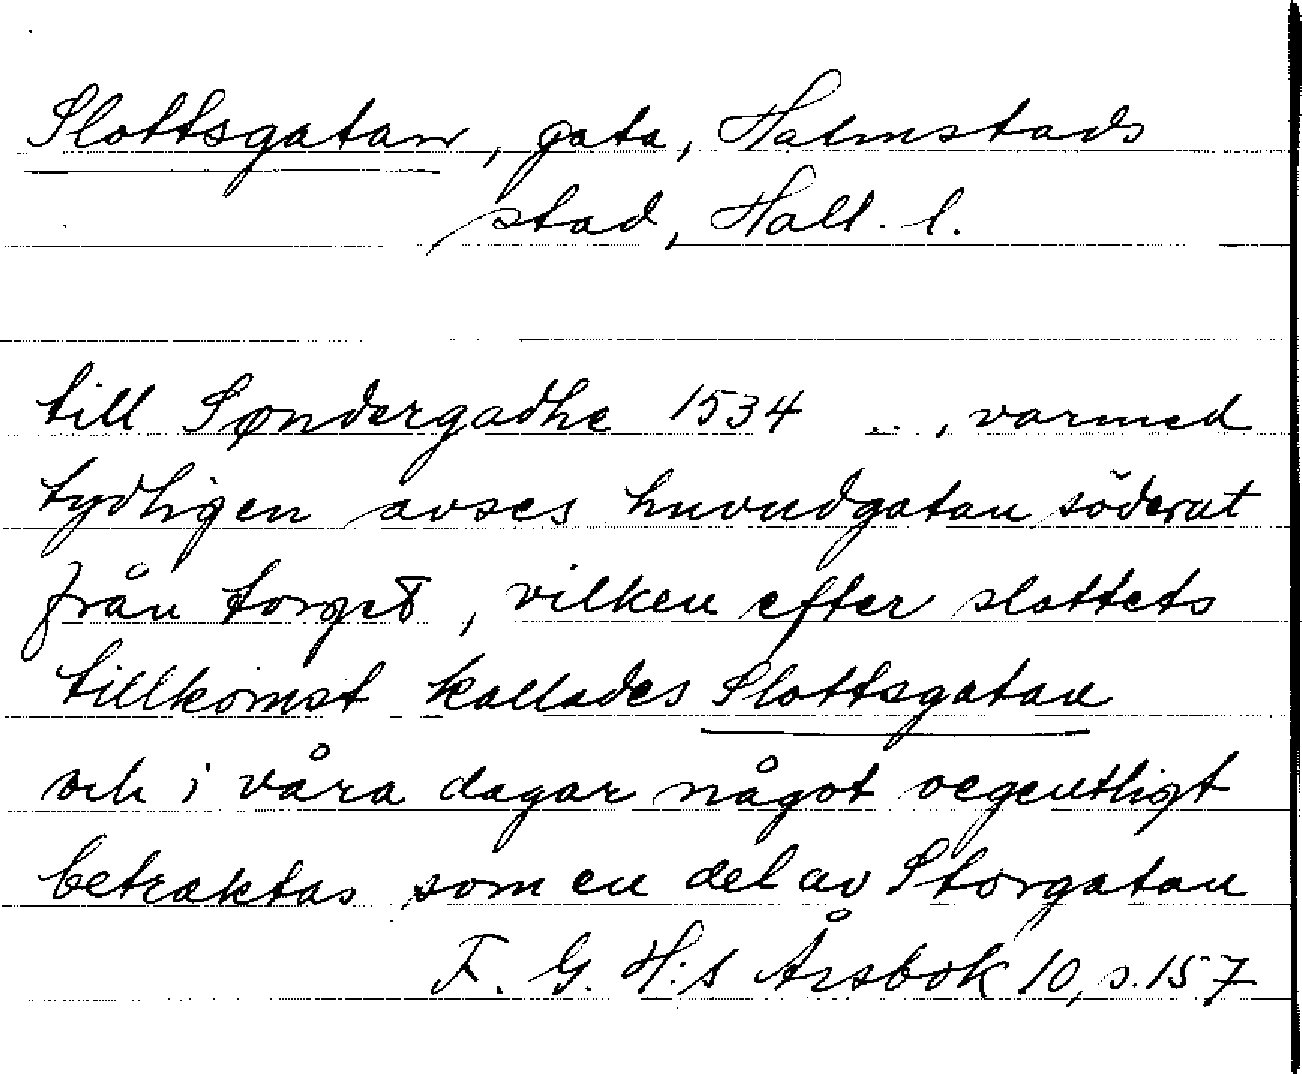 Slottsgatan, gata, Halmstads
stad, Hall. l.
till Søndergadhe 1534 .., varmed
tydligen avses huvudgatan söderut
från torget, vilken efter slottets
tillkomst kallades Slottsgatan
och i våra dagar något oegentligt
betraktas som en del av Storgatan
F. G. H:s Årsbok 10, s. 157